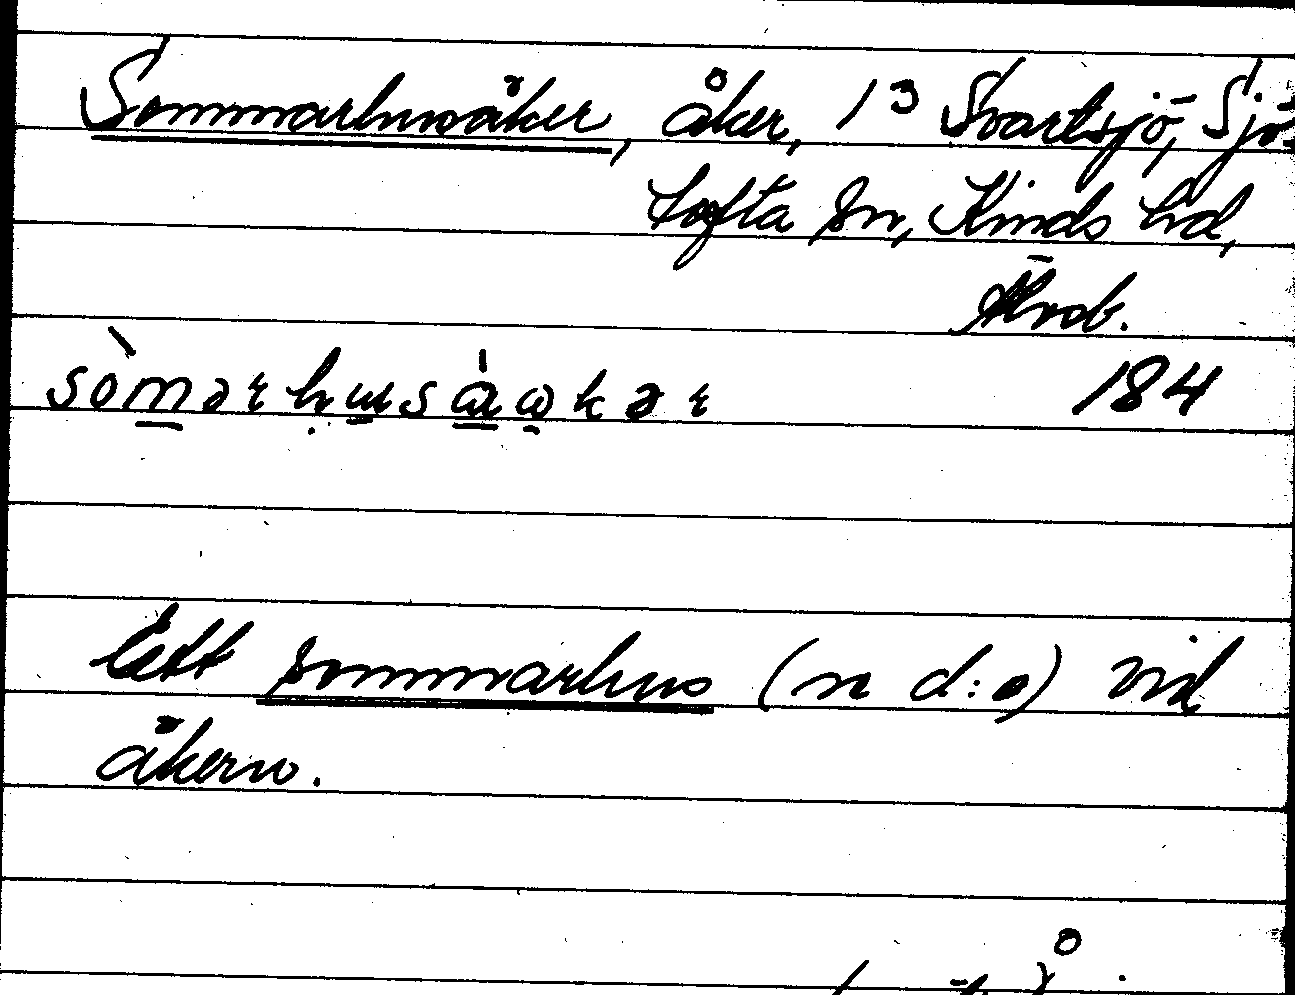 Sommarhusåker, åker, 1³ Svartsjö, Sjö-
tofta sn, Kinds hd,
Älvsb.
sòmərhusåωkər 184
Ett sommarhus (n d:o) vid
åkern.